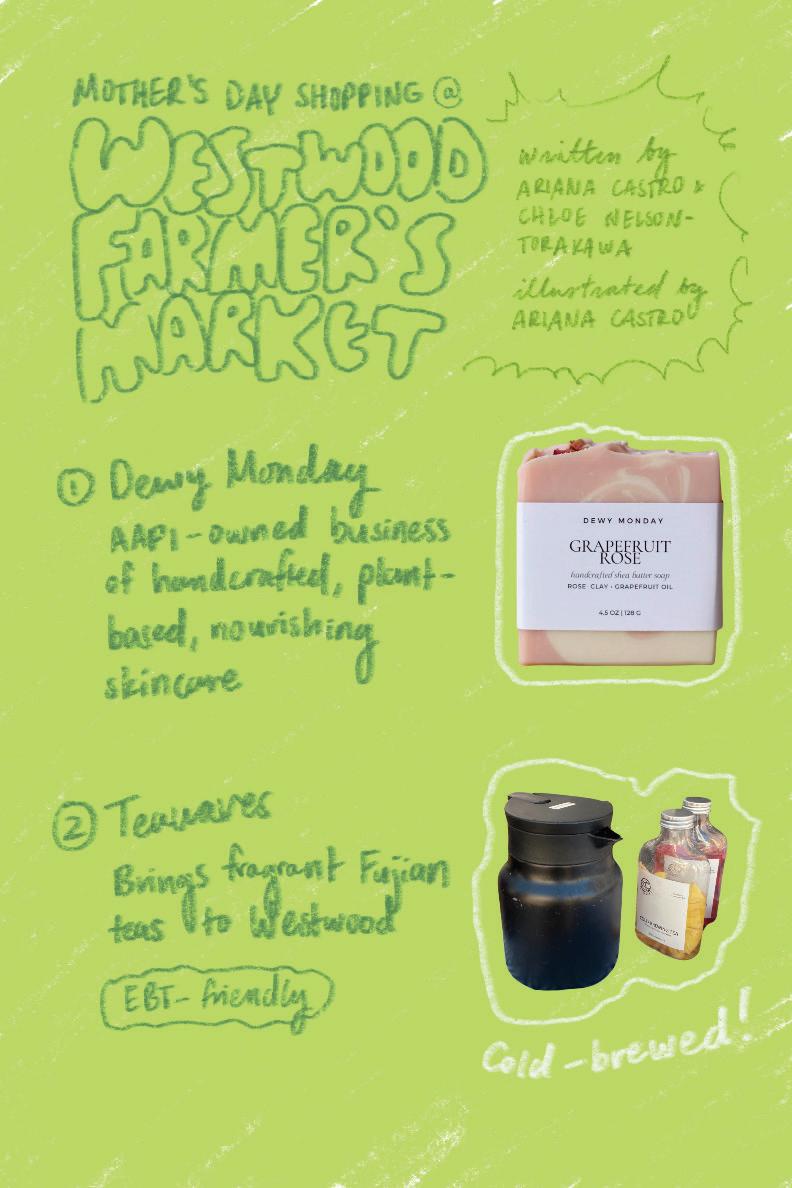 MOTHER'S DAY SHOPPING @
WESTWOOD
FARMER'S
MARKET
written by
ARIANA CASTRO &
CHLOE NELSON-
TORAKAWA
illustrated by
ARIANA CASTRO
① Dewy Monday
AAPI-owned business
of handcrafted, plant-
based, nourishing
skincare
DEWY MONDAY
GRAPEFRUIT
ROSE
handcrafted shea butter soap
ROSE CLAY · GRAPEFRUIT OIL
4.5 OZ | 128 G
② Teawaves
Brings fragrant Fujian
teas to Westwood
EBT-friendly
Cold-brewed!